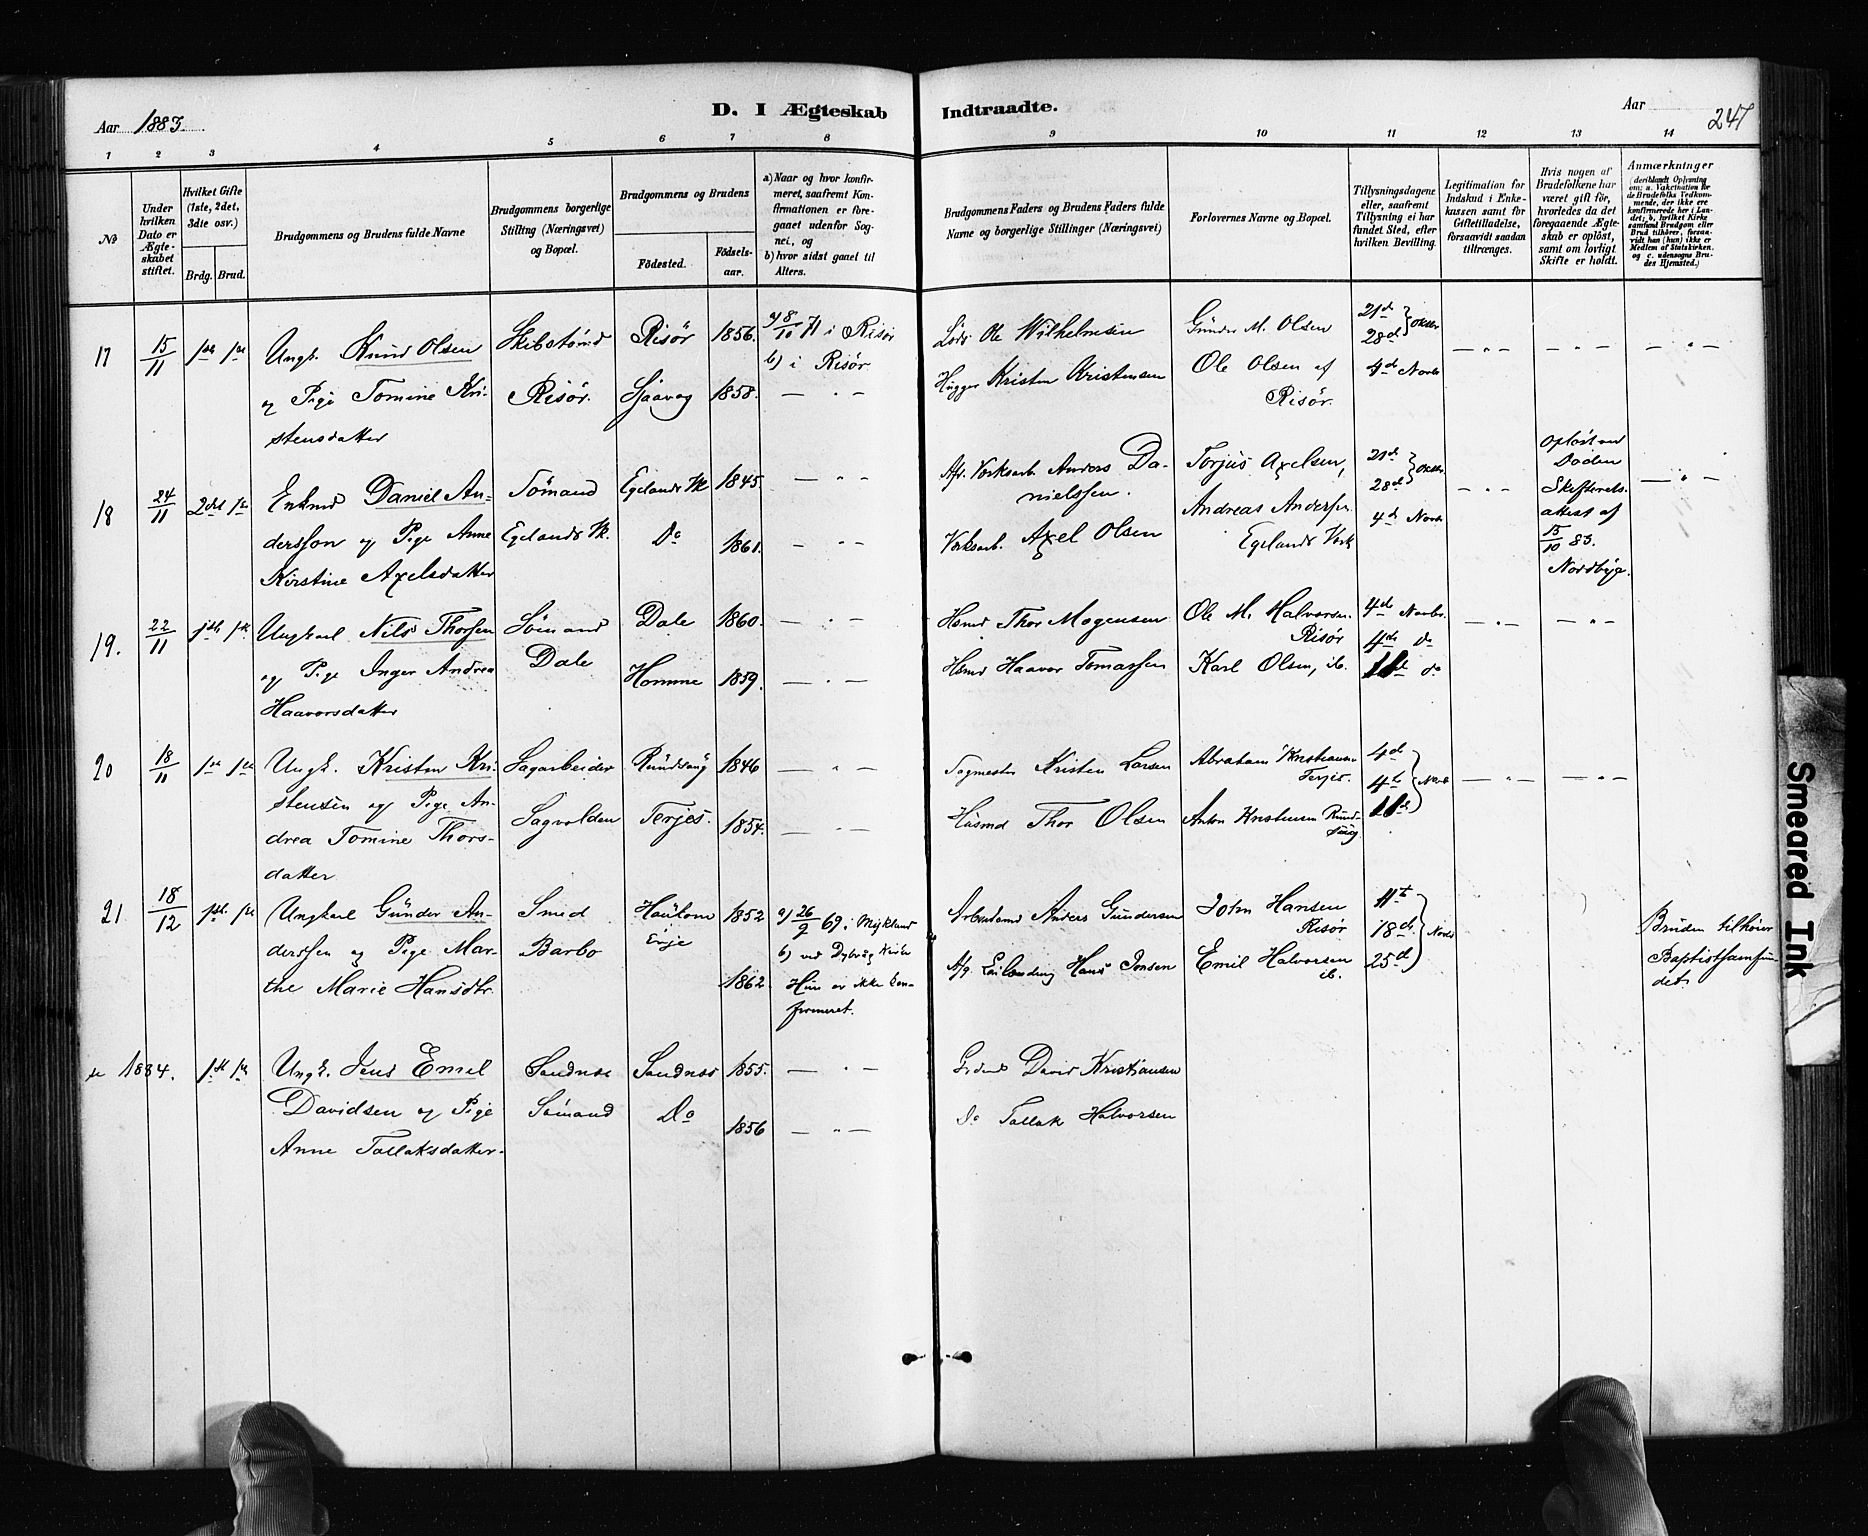 Aar 1883.
D. I Ægteskab Indtraadte.
Aar
247
1 2 3 4 5 6 7 8 9 10 11 12 13 14
No
Under hvilken Dato er Ægteskabet stiftet.
Hvilket Gifte (1ste, 2det, 3die osv.)
Brdg. Brud.
Brudgommens og Brudens fulde Navne
Brudgommens borgerlige Stilling (Næringsvei) og Bopæl.
Brudgommens og Brudens
Födested.
Födsels-aar.
a) Naar og hvor konfir-
meret, saafremt Kon-
firmationen er fore-
gaaet udenfor Sog-
nei, og
b) hvor sidst gaaet til
Alters.
Brudgommens Faders og Brudens Faders fulde
Navne og borgerlige Stillinger (Næringsvei)
Forlovernes Navne og Bopæl.
Tillysningsdagene
eller, saafremt
Tillysning ei har
fundet Sted, efter
hvilken Bevilling.
Legitimation for
Indskud i Enke-
kassen samt for
Giftetilladelse,
forsaavidt saadan
tiltrænges.
Hvis nogen af
Brudefolkene har
været gift för,
hvorledes da det
foregaaende Ægte-
skab er oplöst,
samt om lovligt
Skifte er holdt.
Anmærkninger
(deriblandt Oplysning
om: a. Vakcination for
de Brudefolks Vedkom-
mende, der ikke ere
konfirmerede her i Lan-
det; b, hvilket Kirke
samfund Brudgom eller
Brud tilhörer, forsaa-
vidt han (hun) ikke er
Medlem af Statskirken,
og c. udensogns Bru-
des Hjemsted.)
17 15/11 1ste 1ste
Ungk. Knud Olsen
og Pige Tomine Kri-
stensdatter
Skibstømd
Risör.
Risör 1856.
Sjaavag 1858.
a) 8/10 71 i Risör
b) i Risör
— " —
Lods Ole Wilhelmsen
Hugger Kristen Kristensen
Gunder M. Olsen
Ole Olsen af
Risör.
21de
28de Oktbr
4de Novbr
— " — — " — — " —
18 24/11 2det 1ste
Enkmd Daniel An-
derssson og Pige Anne
Kirstine Axelsdatter
Sömand
Egelands Vk.
Egelands Vk 1845.
Do 1861.
— " —
— " —
Afd. Værksarb. Anders Da-
nielssen.
Værksarb. Axel Olsen
Torjus Axelsen,
Andreas Anderssen
Egelands Værk
21de
28de Oktbr.
4de Novbr
— " —
Opløst ved
Döden
Skifterets-
attest af
15/10 83.
Nordbyé.
— " —
19. 22/11 1ste 1ste
Ungkarl Nils Thorsen
og Pige Inger Andrea
Haavorsdatter
Sömand
Dale
Dale 1860.
Homme 1859.
— " —
— " —
Husmd Thor Mogensen
Husmd Haavor Tomassen
Ole M. Halvorsen
Risör
Karl Olsen, ib.
4de Novbr.
11te do
18de do
— " — — " —
20 18/11 1ste 1ste
Ungk. Kristen Kri-
stensen og Pige An-
drea Tomine Thors-
datter
Sagarbeider
Sagvolden
Rundsaug 1846
Terjes. 1854.
— " —
— " —
Sagmester Kristen Larsen
Husmd Thor Olsen
Abraham Kristiansen
Terjes.
Anton Kristensen Rund-
saug
4de
11te Novbr
18de
— " — — " —
21 18/12 1ste 1ste
Ungkarl Gunder An-
derssen og Pige Mar-
the Marie Hansdtr.
Smed
Barbo
1852
1862.
a) 26/9 69 i Mykland
b) ved Dybvåg Kirke
Hun er ikke kon-
firmeret.
Arbeidsmd Anders Gundersen
Hans Jensen
John Hansen
Risör
Emil Halvorsen
ib.
11te
18de Novbr
25de
Bruden tilhører
Baptistsamfun-
det.
1884. 1ste 1ste
Ungk. Jens Emil
Davidsen og Pige
Anne Tallaksdatter.
Sandnes
Sömand
Sandnes 1855.
Do 1856
— " —
— " —
David Kristiansen
Do Tallak Halvorsen
Smeared Ink